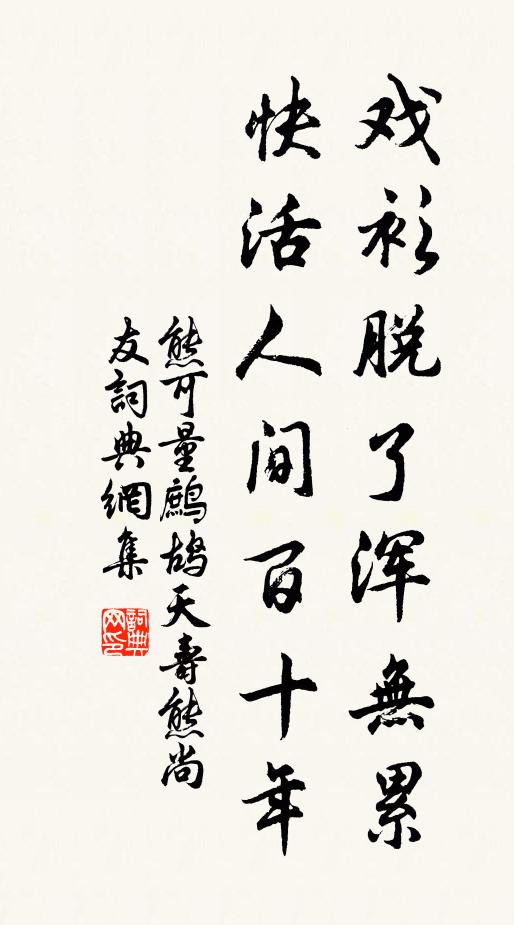 戏衫脱了浑無累
快活人间百十年
熊可量鹧鸪天壽熊尚
友詞典網集
詞典
网印